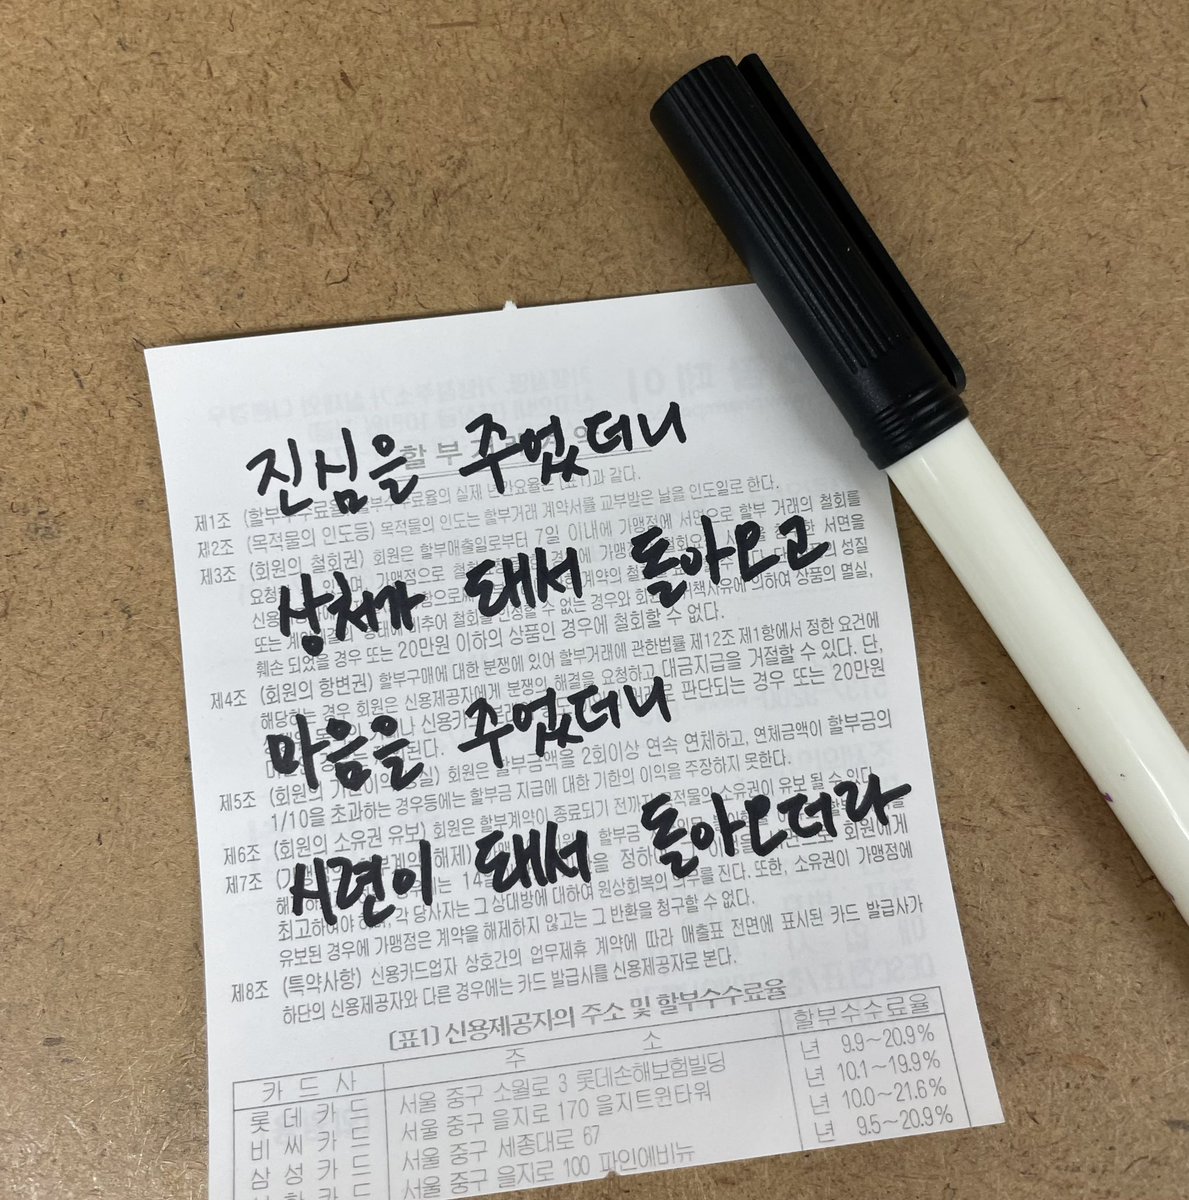 진심을 주었더니
상처가 돼서 돌아오고
마음을 주었더니
시련이 돼서 돌아오더라
할부거래
제1조 (할부수수료율) 할부수수료율의 실제 년간요율은 (표1)과 같다.
제2조 (목적물의 인도등) 목적물의 인도는 할부거래 계약서를 교부받은 날을 인도일로 한다.
제3조 (회원의 철회권) 회원은 할부매출일로부터 7일 이내에 가맹점에 서면으로 할부 거래의 철회를
요청 가맹점으로 서면을
신용 계약의 성질
또는 비추어 철회를 인정할 수 없는 경우와 회원 책사유에 의하여 상품의 멸실,
훼손 되었을 경우 또는 20만원 이하의 상품인 경우에 철회할 수 없다.
제4조 (회원의 항변권) 할부구매에 대한 분쟁에 있어 할부거래에 관한법률 제12조 제1항에서 정한 요건에
해당하는 경우 회원은 신용제공자에게 분쟁의 해결을 요청하고 대금지급을 거절할 수 있다. 단,
신용카 판단되는 경우 또는 20만원
된다.
제5조 (회원의 실) 회원은 할부금액을 2회이상 연속 연체하고, 연체금액이 할부금의
1/10을 초과하는 경우등에는 할부금 지급에 대한 기한의 이익을 주장하지 못한다.
제6조 (회원의 소유권 유보) 회원은 할부계약이 종료되기 전까지 목적물의 소유권이 유보 될 수 있다.
제7조 해제) 할부금
14일 정하 회원에게
최고하여야 하며, 각 당사자는 그 상대방에 대하여 원상회복의 의무를 진다. 또한, 소유권이 가맹점에
유보된 경우에 가맹점은 계약을 해제하지 않고는 그 반환을 청구할 수 없다.
제8조 (특약사항) 신용카드업자 상호간의 업무제휴 계약에 따라 매출표 전면에 표시된 카드 발급사가
하단의 신용제공자와 다른 경우에는 카드 발급사를 신용제공자로 본다.
(표1) 신용제공자의 주소 및 할부수수료율
카드사 주소 할부수수료율
롯데카드 서울 중구 소월로 3 롯데손해보험빌딩 년 9.9~20.9%
비씨카드 서울 중구 을지로 170 을지트윈타워 년 10.1~19.9%
삼성카드 서울 중구 세종대로 67 년 10.0~21.6%
서울 중구 을지로 100 파인에비뉴 년 9.5~20.9%